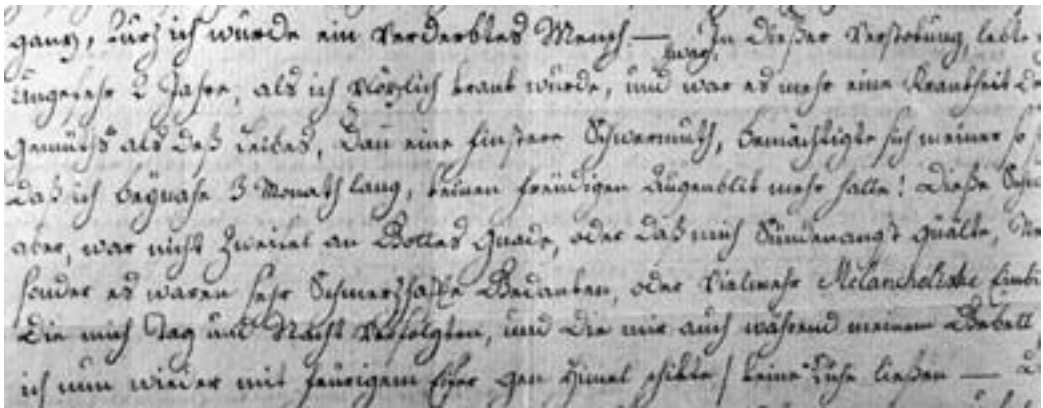 ganz, kurz ich wurde ein verderbtes Mensch — In dießer Verstobung, lebte
zwar,
Ungefehr 2 Jahre, als ich plözlich krank wurde, und war es mehr eine Krankheit de
Gemüths als deß Leibes, Dan eine finstere Schwermuth, bemächtigte sich meiner so
Daß ich beÿnahe 3 Monath lang, keinen freudigen Augenblik mehr hatte! Dieße Schw
aber, war nicht Zweifel an Gottes Gnade, oder daß mich Sündenangst quälte, Ne
sonder es waren sehr Schmerzhafte Gedanken, oder vielmehr Melancholiske Einbi
Die mich Tag und Nacht verfolgten, und die mir auch während meinem Gebett
ich nun wieder mit feurigem Eifer gen Himel schikte / keine Ruhe ließen —